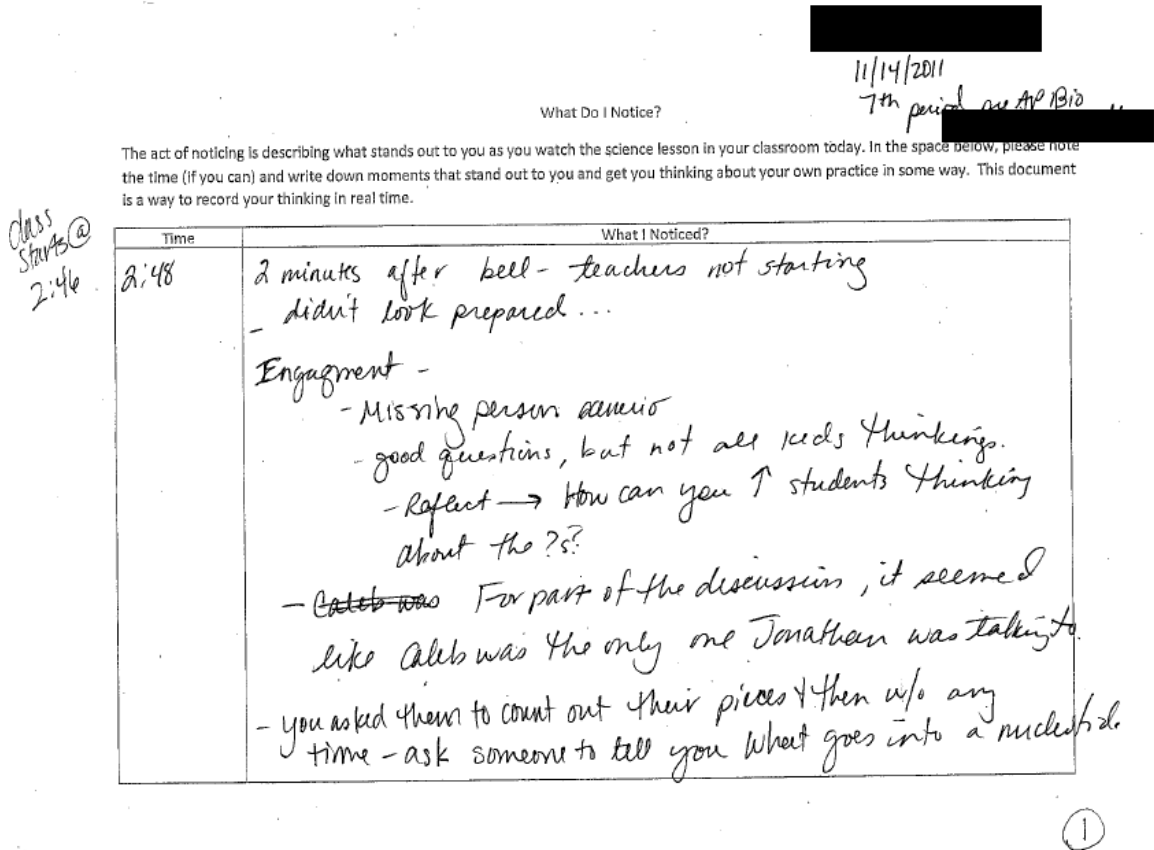 11/14/2011
7th period pre AP Bio
What Do I Notice?
The act of noticing is describing what stands out to you as you watch the science lesson in your classroom today. In the space below, please note
the time (if you can) and write down moments that stand out to you and get you thinking about your own practice in some way. This document
is a way to record your thinking in real time.
class
starts @
2:46
Time
What I Noticed?
2:48
2 minutes after bell - teachers not starting
- didn't look prepared...
Engagment -
- Missing person scenerio
- good questions, but not all kids thinkings.
- Reflect → How can you ↑ students thinking
about the ?s?
- Caleb was For part of the discussion, it seemed
like Caleb was the only one Jonathan was talking to.
- you asked them to count out their pieces & then w/o any
time - ask someone to tell you what goes into a nucleotide.
1